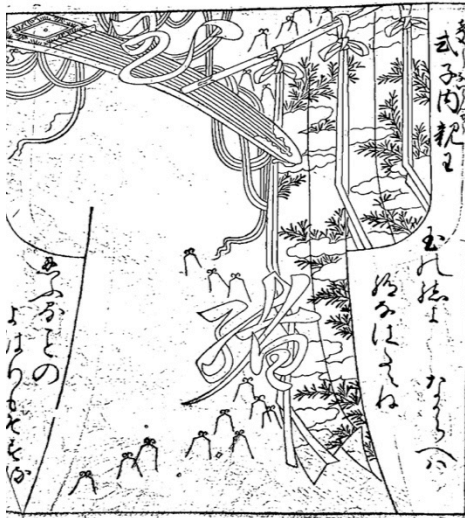 式子内親王
玉の緒よ
絶なはたえね
なからへハ
緒
忍ふることの
よはりもそする